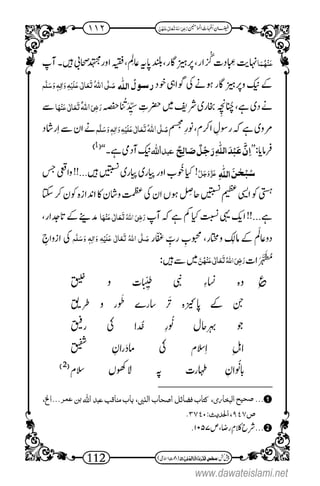 فیضانِ اُمَّہاتُ المؤمنین
۱۱۲
عَنْہُمَا نہایت عبادت گزار، پرہیز گار، بلند پایہ عالم، فقیہ اور مجتہد صحابی ہیں۔ آپ
کے نیک اور پرہیز گار ہونے کی گواہی خود رسولُ اللہ صَلَّی اللہُ تَعَالٰی عَلَیْہِ وَاٰلِہٖ وَسَلَّم
نے دی ہے، چنانچہ بخاری شریف میں حضرتِ سیِّدَتُنا حفصہ رَضِیَ اللہُ تَعَالٰی عَنْہَا سے
مروی ہے کہ رسولِ اکرم، نورِ مجسم صَلَّی اللہُ تَعَالٰی عَلَیْہِ وَاٰلِہٖ وَسَلَّم نے ان سے ارشاد
فرمایا: "اِنَّ عَبْدَ اللہِ رَجُلٌ صَالِحٌ عبد اللہ نیک آدمی ہے۔"(1)
سُبْحٰنَ اللہِ عَزَّوَجَلَّ! کیا خوب اور پیاری پیاری نسبتیں ہیں...!! واقعی جس
کو ایسی عظیم نسبتیں حاصل ہوں ان کی عظمت و شان کا اندازہ کون کر سکتا
ہے...!! ایک یہی نسبت کیا کم ہے کہ آپ رَضِیَ اللہُ تَعَالٰی عَنْہَا مدینے کے تاجدار،
دو عالَم کے مالک و مختار، محبوبِ ربِّ غفّار صَلَّی اللہُ تَعَالٰی عَلَیْہِ وَاٰلِہٖ وَسَلَّم کی ازواجِ
مُطَہَّرَات رَضِیَ اللہُ تَعَالٰی عَنْہُنَّ میں سے ہیں:
وہ نساءِ نبی طیبات و خلیق
جن کے پاکیزہ تر سارے طور و طریق
جو بہرحال نورِ خدا کی رفیق
اہلِ اسلام کی مادرانِ شفیق
بانوانِ طہارت پہ لاکھوں سلام (2)
1...صحیح البخاری، کتاب فضائل اصحاب النبی، باب مناقب عبد اللہ بن عمر...الخ،
ص٩٤٧، الحدیث: ٣٧٤٠.
2...شرحِ کلامِ رضا، ص١٠٥٧.
112
www.dawateislami.net